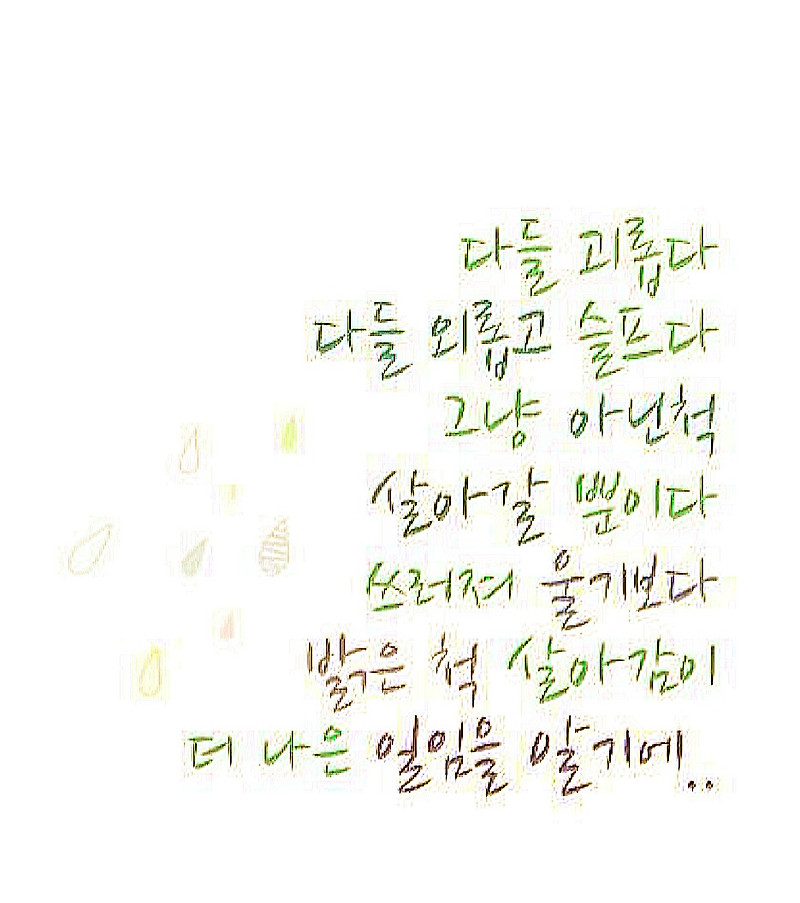 다들 괴롭다
다들 외롭고 슬프다
그냥 아닌척
살아갈 뿐이다
쓰러져 울기보다
밝은 척 살아감이
더 나은 일임을 알기에..